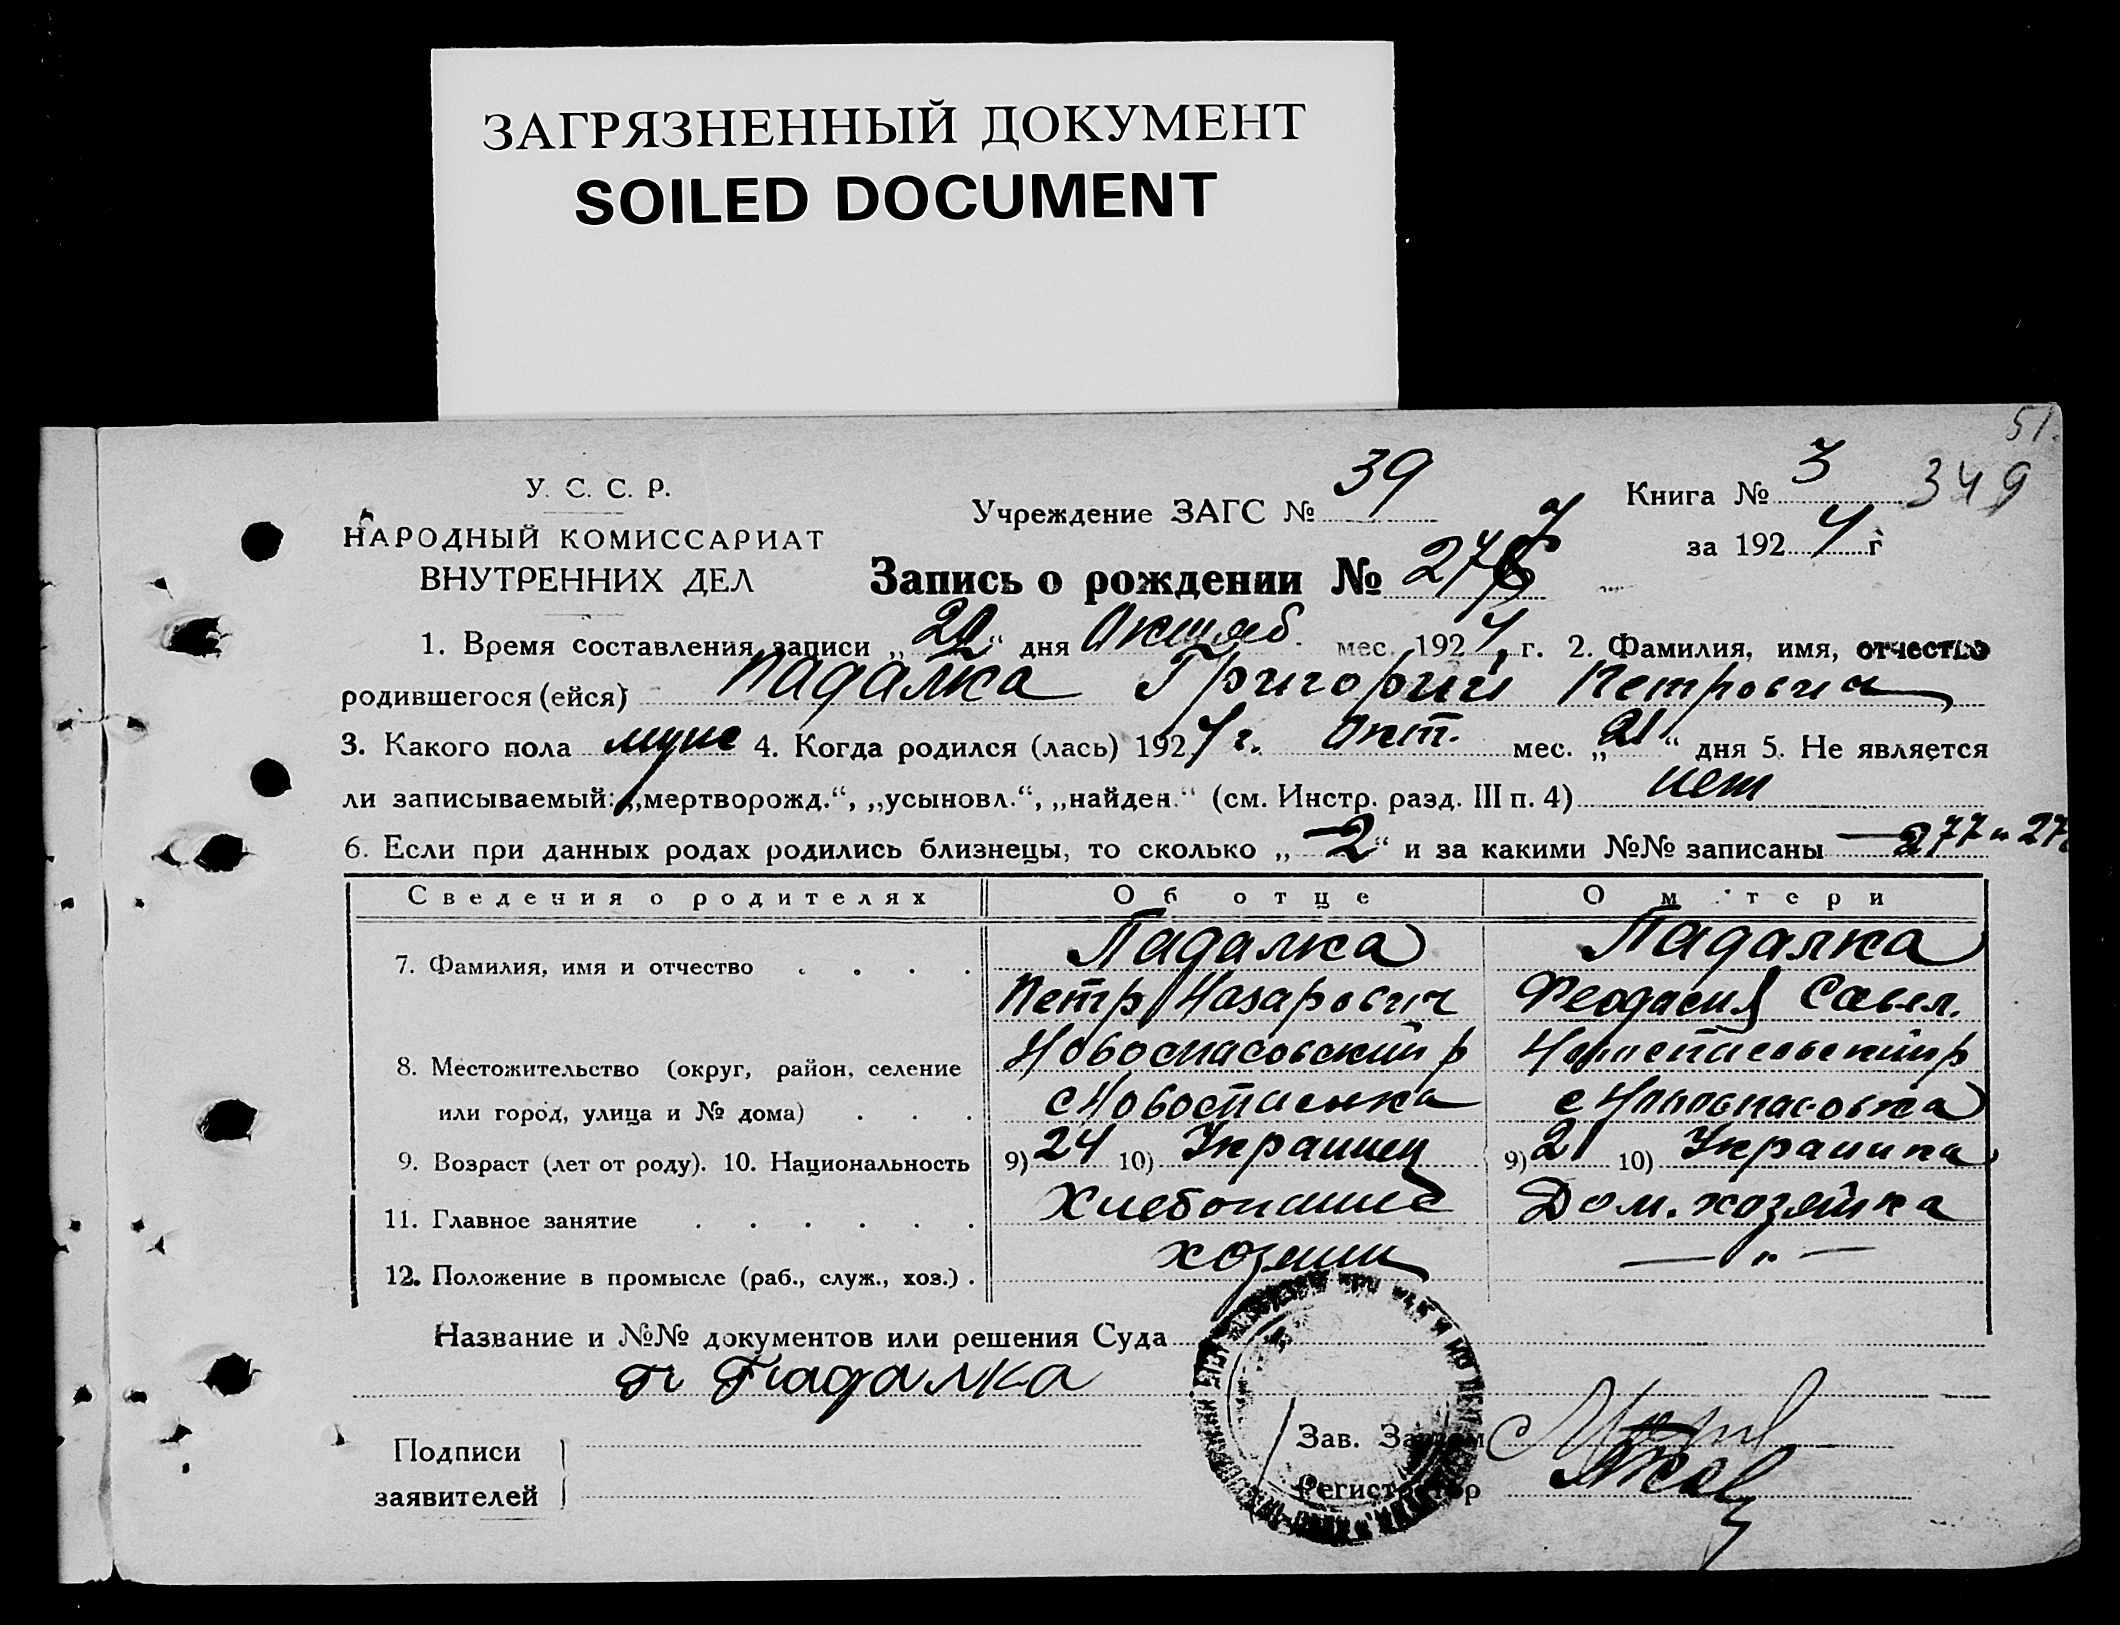 ЗАГРЯЗНЕННЫЙ ДОКУМЕНТ
SOILED DOCUMENT
51.
У. С. С. Р.
НАРОДНЫЙ КОМИССАРИАТ
ВНУТРЕННИХ ДЕЛ
Учреждение ЗАГС № 39
Книга № 3 349
за 1924 г
Запись о рождении № 277
1. Время составления записи „ “ дня Октяб. мес. 1924 г. 2. Фамилия, имя, отчество
родившегося (ейся) Падалка Григорий Петрович
3. Какого пола муж 4. Когда родился (лась) 1924 г. Окт. мес. „21“ дня 5. Не является
ли записываемый: „мертворожд.“, „усыновл.“, „найден.“ (см. Инстр. разд. III п. 4) нет
6. Если при данных родах родились близнецы, то сколько „2“ и за какими №№ записаны 277 и 27
Сведения о родителях Об отце О м тери
7. Фамилия, имя и отчество Падалка Падалка
Петр Назарович Феодосия Савел.
8. Местожительство (округ, район, селение Новоспасовский р Новоспасовский р
или город, улица и № дома) с Новоспасовка с Новоспасовка
9. Возраст (лет от роду). 10. Национальность 9) 24 10) Украинец 9) 21 10) Украинка
11. Главное занятие Хлебопашец Дом. хозяйка
12. Положение в промысле (раб., служ., хоз.) хозяин — „ —
Название и №№ документов или решения Суда
п Падалка
Подписи
заявителей
Зав. Загсом
Регистратор